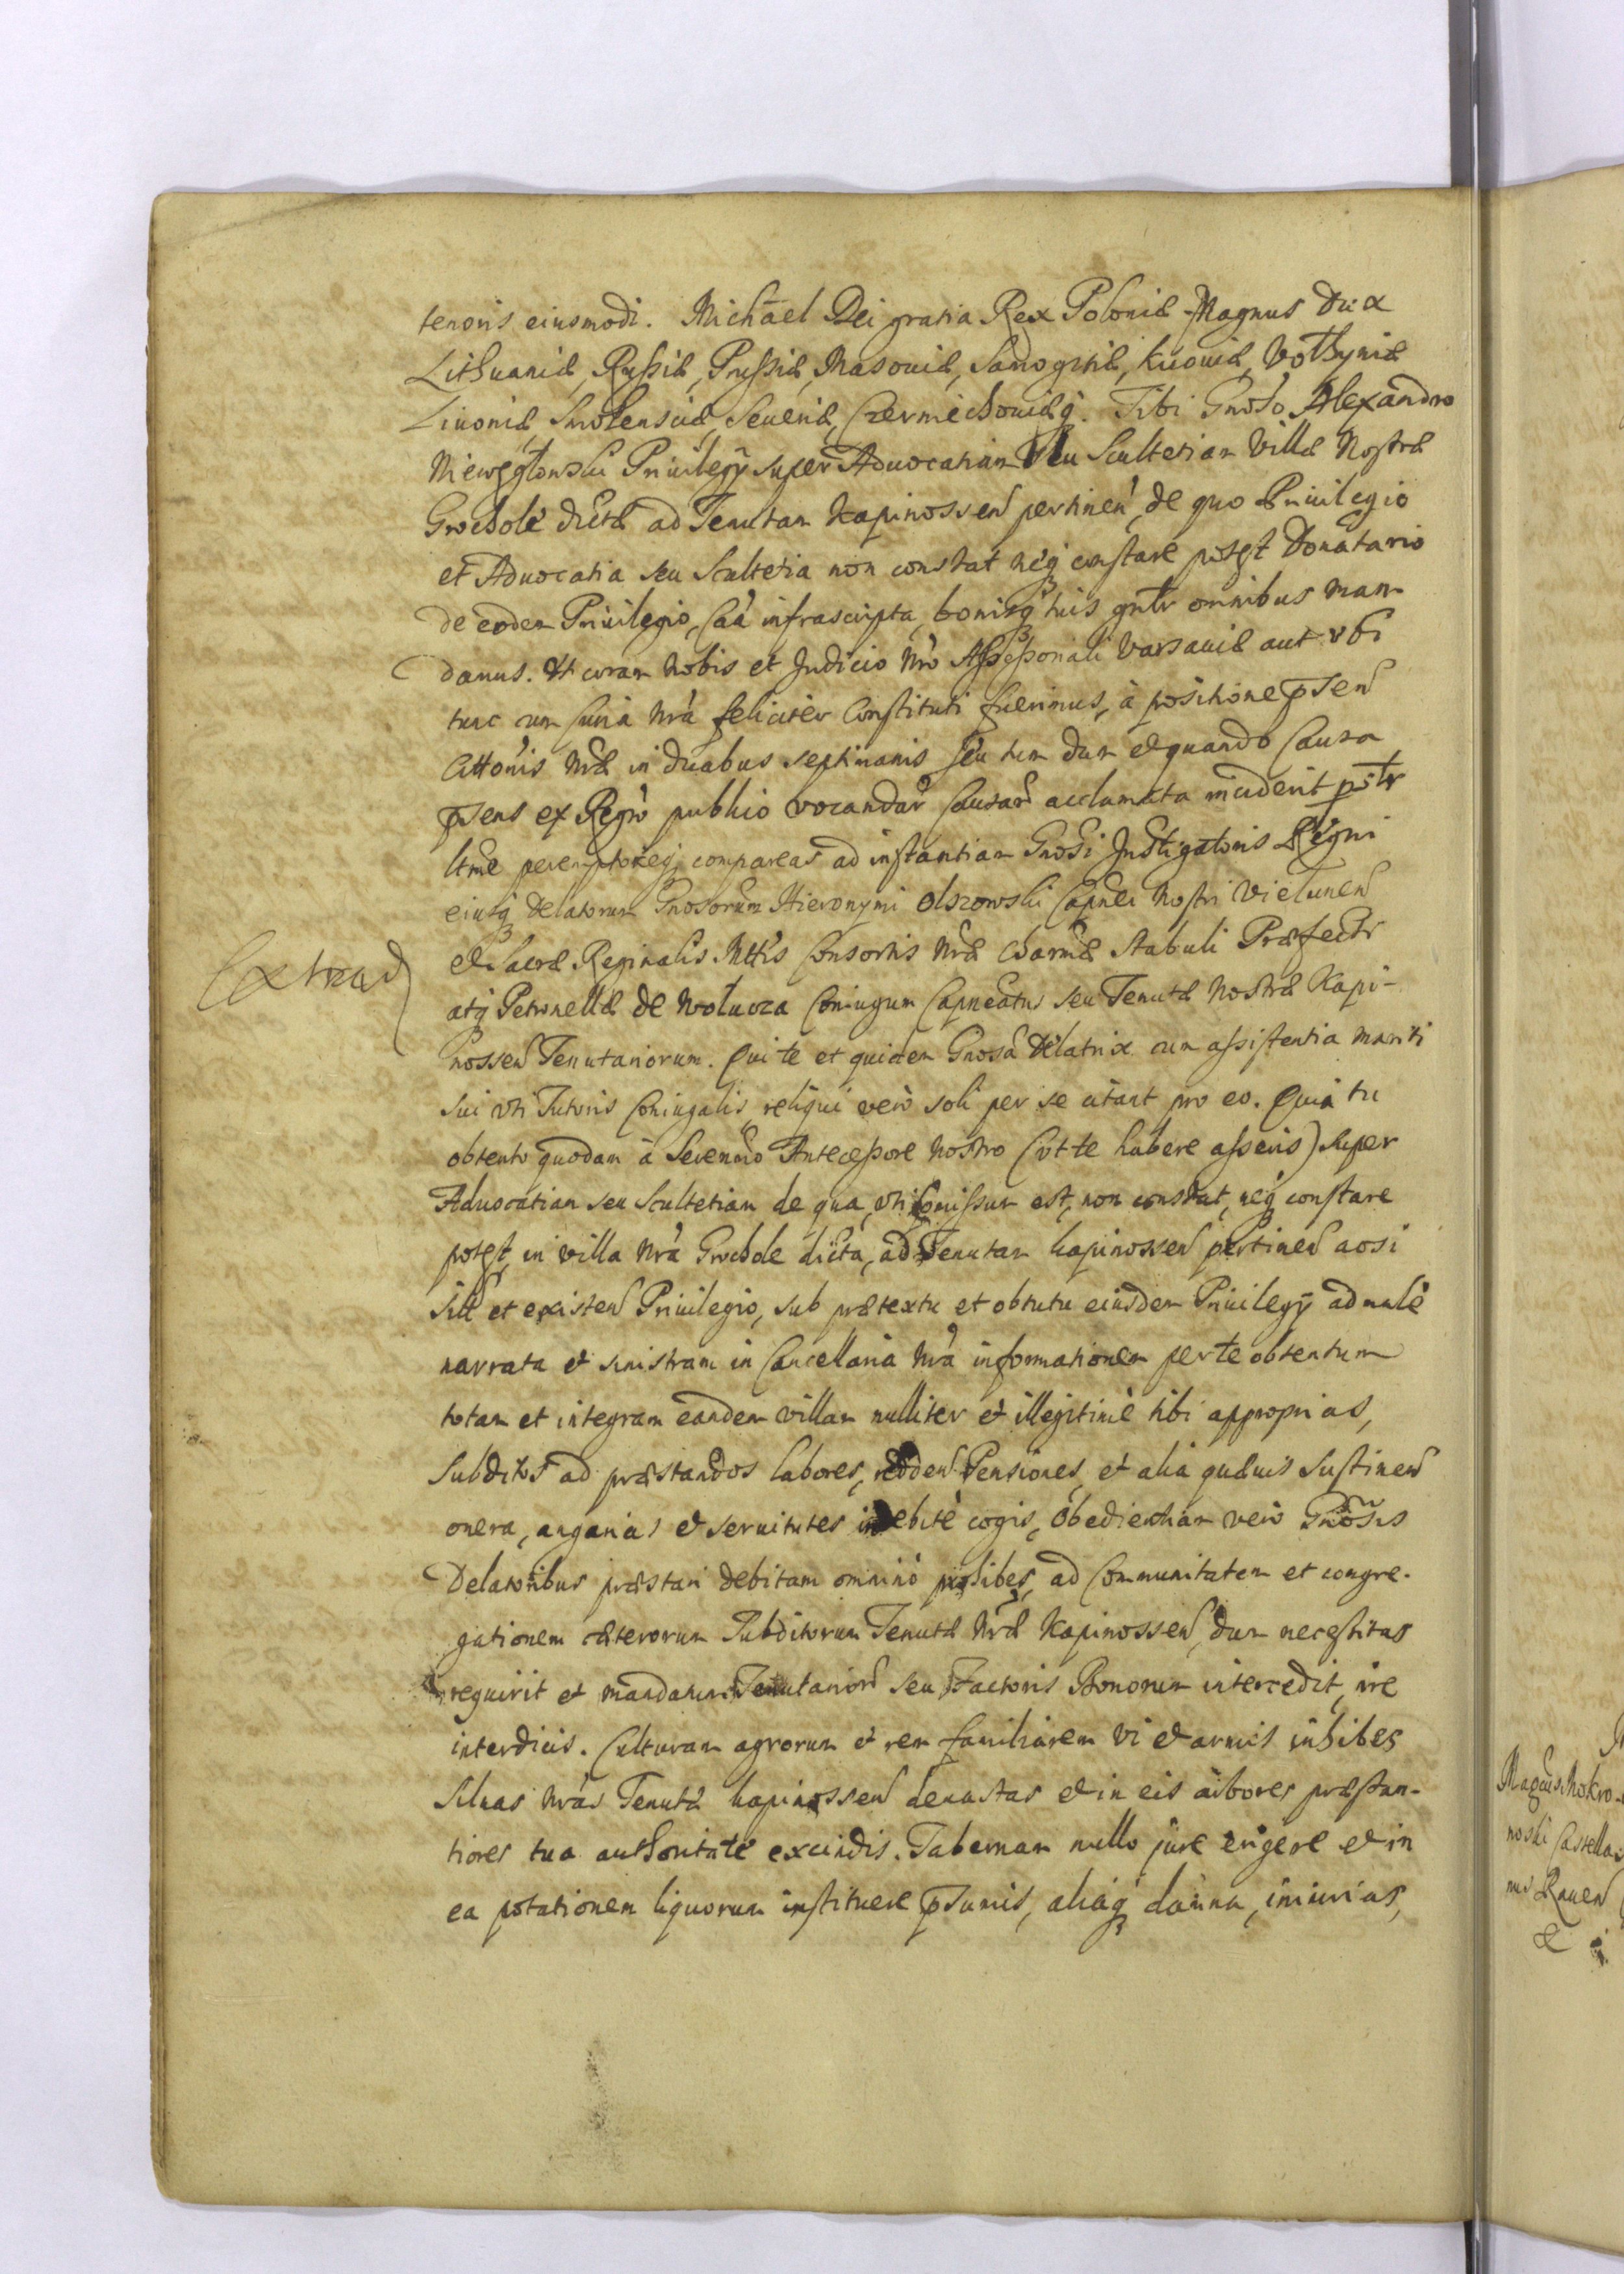 tenoris eiusmodi. Michael Dei gratia Rex Poloniæ Magnus Dux
Lithuaniæ, Russiæ, Prussiæ, Masouiæ, Samogitiæ, Kiiouiæ, Vołhyniæ
Liuoniæ, Smolensciæ, Seueriæ, Czerniechouiæq. Tibi Gnoso Alexandro
Niewęgłowski Priuilegÿ super Aduocatiam seu Scultetiam Villæ Nostræ
Grochole dictæ ad Tenutam Kapinossen pertinen, de quo Priuilegio
et Aduocatia seu Scultetia non constat neq constare potest Donatario
de eodem Priuilegio, Caa infrascripta, bonisq tuis gnlr omnibus man-
damus. Vt coram Nobis et Judicio Nro Assessoriali Varsauiæ aut vbi
tunc cum Curia Nra feliciter Constituti fuerimus, à positione psen
Cittonis Nræ in duabus septimanis seu tum dum et quando Causa
psens ex Regro publico vocandar Causar acclamata inciderit psltr
ltme peremptorieq compareas ad instantiam Gnosi Instigatoris Regni
eiusq Delatorum Gnosorum Hieronymi Olszowski Capnei Nostri Vielunen
et Sacræ Reginalis Mttis Consortis Nræ Charmæ Stabuli Præfecti
Extrad
atq Petronellæ de Wolucza Coniugum Capneatus seu Tenutæ Nostræ Kapi-
nossen Tenutariorum. Qui te et quidem Gnosa Delatrix cum assistentia mariti
sui vti Tutoris Coniugalis, reliqui vero soli per se citant pro eo. Quia tu
obtento quodam à Serenmo Antecessore Nostro (vt te habere asseris) super
Aduocatiam seu Scultetiam de qua, vti pmissum est, non constat, neq constare
potest, in villa Nra Grochole dicta, ad Tenutam Kapinossen pertinen aosi
sitt et existen Priuilegio, sub prætextu et obtutu eiusdem Priuilegÿ ad malè
narrata et sinistram in Cancellaria Nra informationem per te obtentum
totam et integram eandem villam nulliter et illegitimè tibi approprias,
Subditos ad præstandos labores, redden Pensiones, et alia quæuis sustinen
onera, angarias et seruitutes indebitè cogis, obedientiam vero Gnosis
Delatoribus præstari debitam omnino prohibes, ad Communitatem et congre-
gationem cæterorum Subditorum Tenutæ Nræ Kapinossen, dum necessitas
requirit et mandatum Tenutarior seu Factoris Bonorum intercedit, ire
interdicis. Culturam agrorum et rem familiarem vi et armis inhibes
Siluas Nras Tenutæ Kapinossen deuastas et in eis arbores præstan-
tiores tua authoritate excindis. Tabernam nullo jure erigere et in
ea potationem liquorum instituere psumis, aliaq damna, iniurias,
Magnus Mokro-
noski Castella-
nus Rauen
&